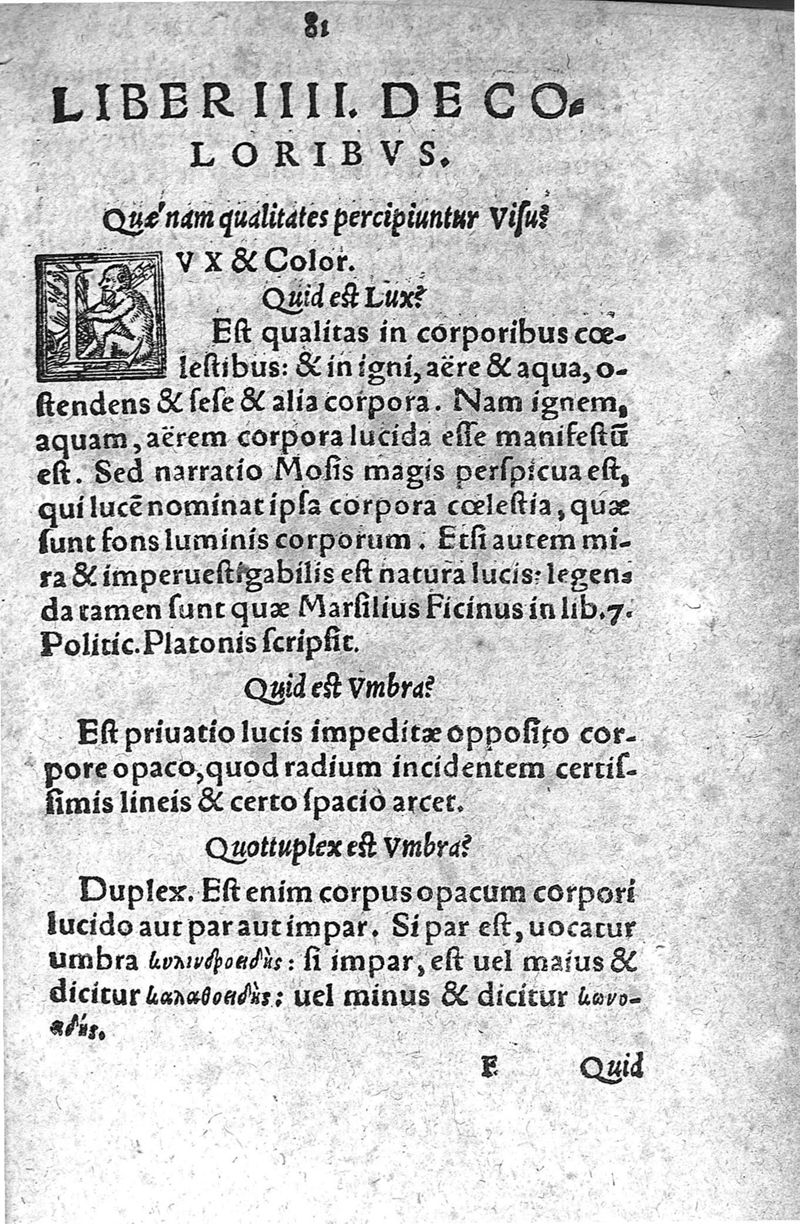 81
LIBER IIII. DE CO-
LORIBVS.
Quæ'nam qualitates percipiuntur Visu?
LVX & Color.
Quid est Lux?
Est qualitas in corporibus cœ-
lestibus: & in igni, aëre & aqua, o-
stendens & sese & alia corpora. Nam ignem,
aquam, aërem corpora lucida esse manifestū
est. Sed narratio Mosis magis perspicua est,
qui lucē nominat ipsa corpora cœlestia, quæ
sunt fons luminis corporum. Etsi autem mi-
ra & imperuestigabilis est natura lucis: legen-
da tamen sunt quæ Marsilius Ficinus in lib. 7.
Politic. Platonis scripsit.
Quid est Vmbra?
Est priuatio lucis impeditæ opposito cor-
pore opaco, quod radium incidentem certis-
simis lineis & certo spacio arcet.
Quottuplex est Vmbra?
Duplex. Est enim corpus opacum corpori
lucido aut par aut impar. Si par est, uocatur
umbra κυλινδροειδὴς: si impar, est uel maius &
dicitur καλαθοειδὴς: uel minus & dicitur κωνο-
ειδής.
F Quid